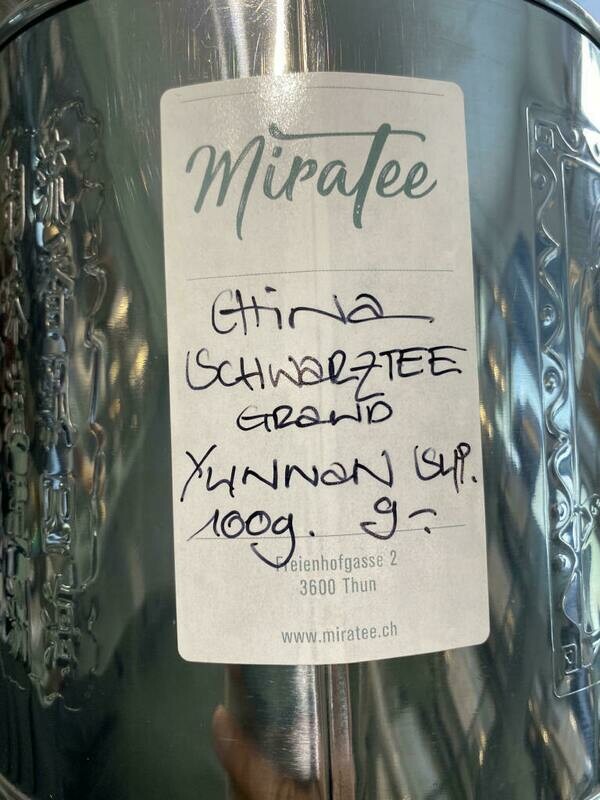 Miratee
China
SCHWARZTEE
GRAND
YUNNAN SUP.
100g. 9.-
Freienhofgasse 2
3600 Thun
www.miratee.ch